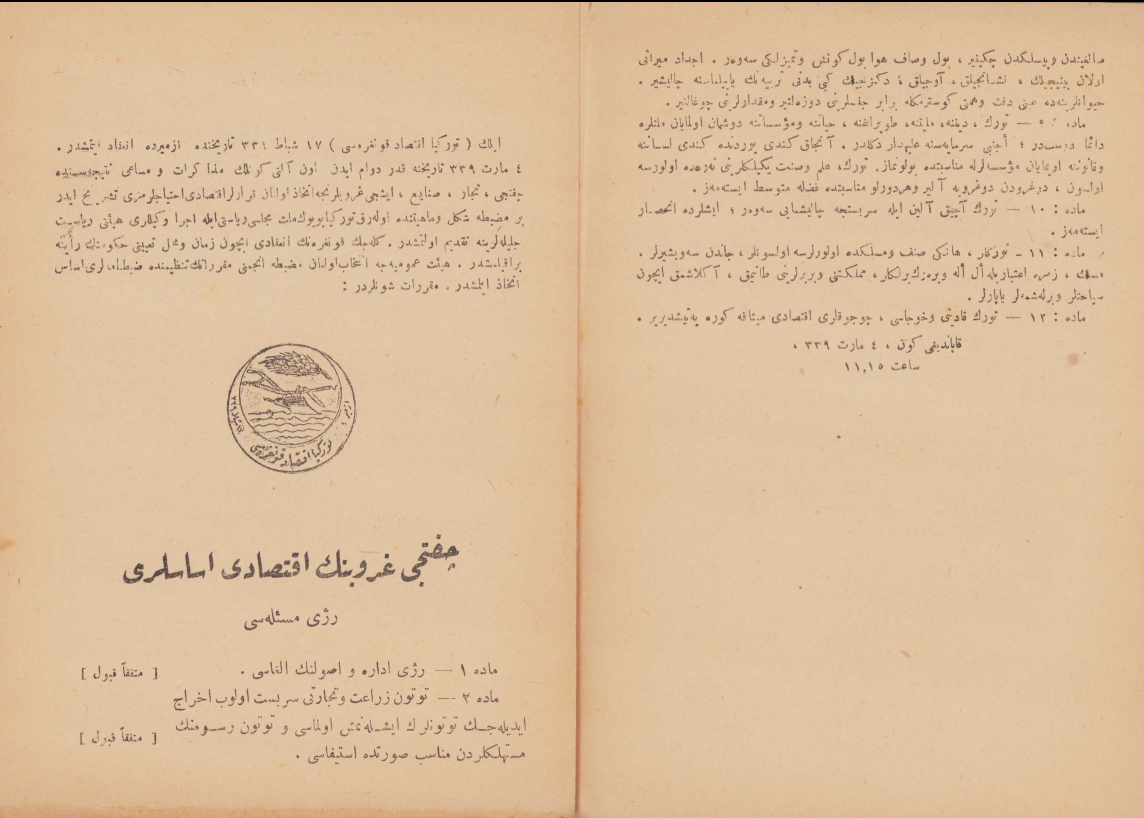 صالغیندن و پیسلكدن چكینیر ، بول وصاف هوا بول كونش وتمیزلكی سه‌وه‌ر . اجداد میراثی
اولان بینیجیلك ، نشانجیلق ، آوجیلق ، دكزجیلك كبی بدنی تربیه‌نك یاپیلماسنه چالیشیر .
حیوانلرینه‌ده عینی دقت وهمتی كوسترمكله برابر جنسلرینی دوزه‌لتیر ومقدارلرینی چوغالتیر .
ماده : ۹ — تورك ، دیننه، ملیتنه، طوپراغنه ، حیاتنه ومؤسساتنه دوشمان اولمایان ملتلره
دائما دوستدر ؛ اجنبی سرمایه‌سنه علیهدار دكلدر . آنجاق كندی یوردنده كندی لساننه
وقانوننه اویمایان مؤسسه‌لرله مناسبتده بولونماز. تورك، علم وصنعت یكیلكلرینی نه‌ره‌ده اولورسه
اولسون ، دوغرودن دوغرویه آلیر وهردورلو مناسبتده فضله متوسط ایسته‌مه‌ز .
ماده : ۱۰ — تورك آچیق آلین ایله سربستجه چالیشمایی سه‌وه‌ر ؛ ایشلرده انحصار
ایسته‌مه‌ز .
ماده : ۱۱ ـ توركلر ، هانكی صنف ومسلكده اولورلرسه اولسونلر ، جاندن سه‌ویشیرلر .
مسلك ، زمره اعتباریله أل أله ویره‌رك برلكلر ، مملكتنی وبربرلرینی طانیمق ، آكلاشمق ایچون
سیاحتلر وبرله‌شمه‌لر یاپارلر .
ماده : ۱۲ — تورك قادینی وخوجاسی ، چوجوقلری اقتصادی میثاقه كوره یه‌تیشدیریر .
قاپاندیغی كون ، ٤ مارت ۳۳۹ ،
ساعت ۱۱,۱٥
ایلك ( توركیا اقتصاد قونغره‌سی ) ۱۷ شباط ۳۳۹ تاریخنده ازمیرده انعقاد ایتمشدر .
٤ مارت ۳۳۹ تاریخنه قدر دوام ایدن اون آلتی كونلك مذاكرات و مساعی نتیجه‌سنده
چفتجی ، تجار ، صنایع ، ایشجی غروپلرنجه اتخاذ اولنان قرارلر اقتصادی احتیاجلرمزی تشریح ایدر
بر مضبطه شكل وماهیتنده اوله‌رق توركیا بویوك ملت مجلسی ریاستی ایله اجرا وكیللری هیئتی ریاست
جلیله‌لرینه تقدیم اولنمشدر. كله‌جك قونغره‌نك انعقادی ایچون زمان ومحل تعیینی حكومتك رأینه
براقیلمشدر . هیئت عمومیه‌جه انتخاب اولنان مضبطه انجمنی مقرراتك تنظیمنده ضبطنامه‌لری اساس
اتخاذ ایلمشدر . مقررات شونلردر :
توركیا اقتصاد قونغره‌سی
ازمیر
چفتجی غروبنك اقتصادی اساسلری
رژی مسئله‌سی
ماده ۱ — رژی اداره و اصولنك الغاسی . [ متفقاً قبول ]
ماده ۲ — توتون زراعت وتجارتی سربست اولوب اخراج
ایدیله‌جك توتونلرك ایشله‌نمش اولماسی و توتون رسومنك [ متفقاً قبول ]
مستهلكلردن مناسب صورتده استیفاسی .